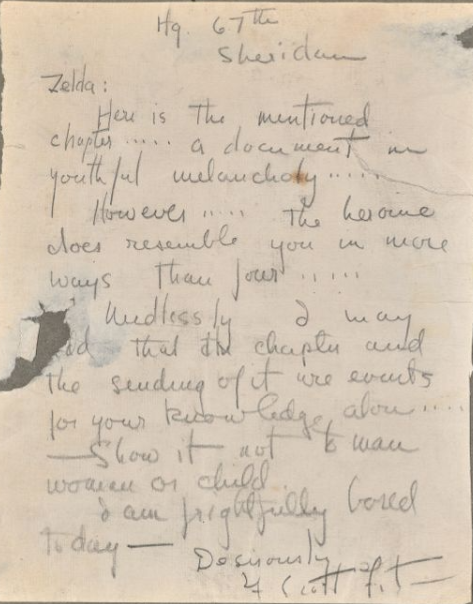 Hq. 67th
Sheridan
Zelda:
Here is the mentioned
chapter ..... a document in
youthful melancholy .....
However ..... the heroine
does resemble you in more
ways than four .....
Needlessly I may
add that the chapter and
the sending of it are events
for your knowledge alone ....
— Show it not to man
woman or child.
I am frightfully bored
today —
Desirously
F Scott Fit—